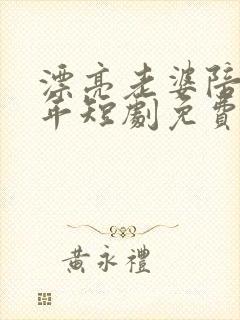 漂亮老婆陪
年短劇免費
黃永禮